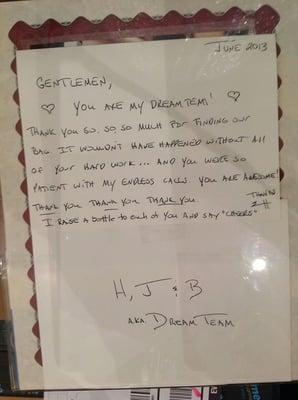 JUNE 2013
GENTLEMEN,
♡ YOU ARE MY DREAMTEAM! ♡
THANK YOU SO, SO, SO MUCH FOR FINDING OUR
BAG. IT WOULDN'T HAVE HAPPENED WITHOUT ALL
OF YOUR HARD WORK... AND YOU WERE SO
PATIENT WITH MY ENDLESS CALLS. YOU ARE AWESOME!
THANK YOU THANK YOU THANK YOU.
I RAISE A bottle to each of you AND SAY "CHEERS"
H, J & B
A.K.A. DREAM TEAM